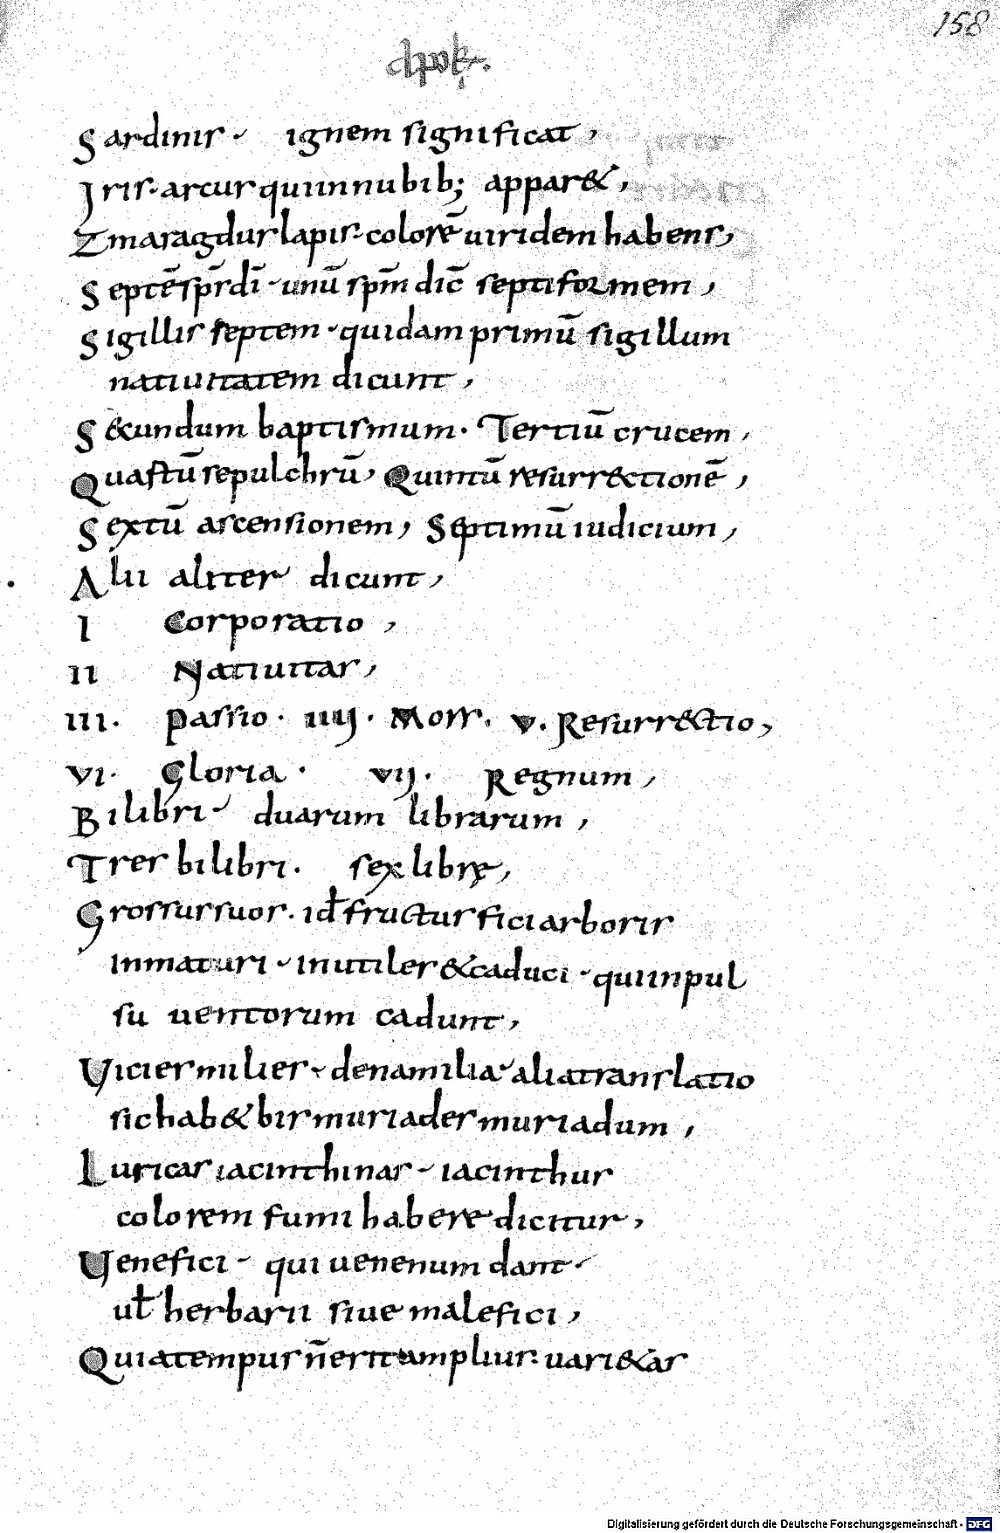 158
apok.
Sardinis · ignem significat,
Iris · arcus qui in nubib; apparet,
Zmaragdus lapis · colorē uiridem habens,
Septē spr̄ dī · unū spm̄ dic̄ septiformem,
Sigillis septem · quidam primū sigillum
natiuitatem dicunt,
Secundum baptismum. Tertiū crucem,
Quartū sepulchrū, Quintū resurrectionē,
Sextū ascensionem, Septimū iudicium,
Alii aliter dicunt,
I Corporatio,
II Natiuitas,
III. Passio. IIII. Mors. V. Resurrectio,
VI. Gloria. VII. Regnum,
Bilibri · duarum librarum,
Tres bilibri. sex librę,
Grossus suos. id fructus fici arboris
inmaturi · inutiles & caduci · qui inpul
su uentorum cadunt,
Vicies milies · dena milia · alia translatio
sic habet bis muriades muriadum,
Luricas iacinthinas · iacinthus
colorem fumi habere dicitur,
Uenefici · qui uenenum dant ·
ul̄ herbarii siue malefici,
Quia tempus n̄ erit amplius · uarietas
Digitalisierung gefördert durch die Deutsche Forschungsgemeinschaft - DFG